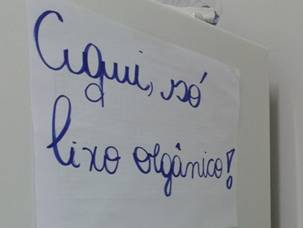 Aqui, só
lixo orgânico!